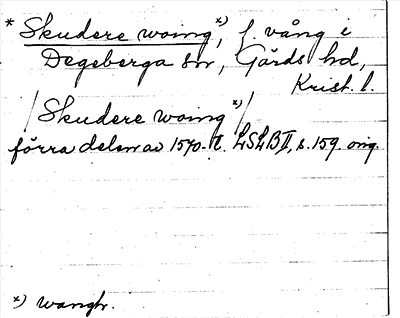 * Skudere woing*), f. vång i
Degeberga sn, Gärds hd,
Krist. l.
/Skudere woing*)/
förra delen av 1570-t. LSLB II, s. 159. orig.
*) wangh.